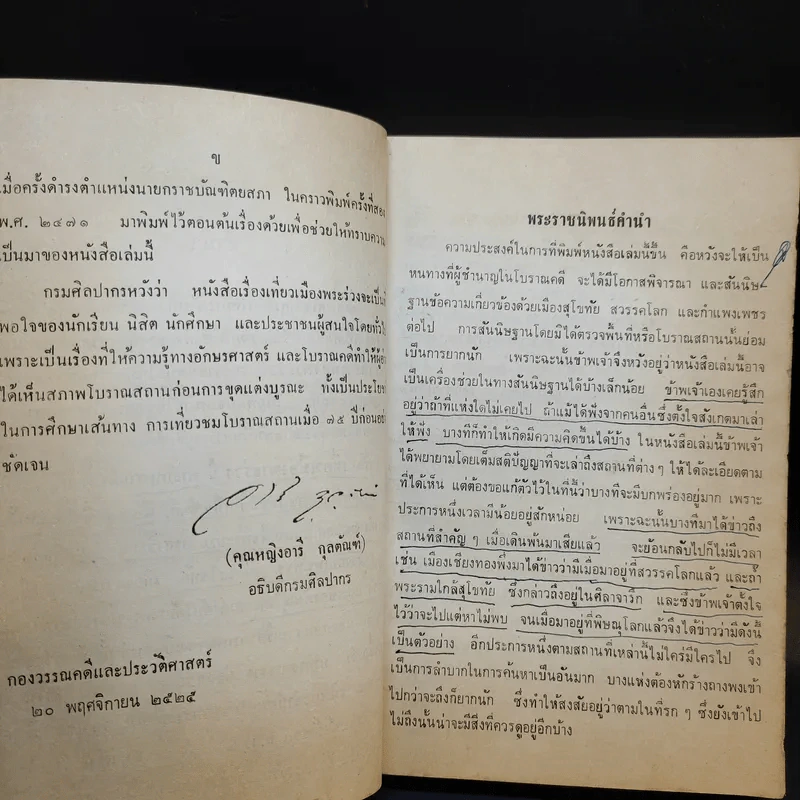 ข
เมื่อครั้งดำรงตำแหน่งนายกราชบัณฑิตยสภา ในคราวพิมพ์ครั้งที่สอง
พ.ศ. ๒๔๗๑ มาพิมพ์ไว้ตอนต้นเรื่องด้วยเพื่อช่วยให้ทราบความ
เป็นมาของหนังสือเล่มนี้
กรมศิลปากรหวังว่า หนังสือเรื่องเที่ยวเมืองพระร่วงจะเป็นที่
พอใจของนักเรียน นิสิต นักศึกษา และประชาชนผู้สนใจโดยทั่วไป
เพราะเป็นเรื่องที่ให้ความรู้ทางอักษรศาสตร์ และโบราณคดีทำให้ผู้
ได้เห็นสภาพโบราณสถานก่อนการขุดแต่งบูรณะ ทั้งเป็นประโยชน์
ในการศึกษาเส้นทาง การเที่ยวชมโบราณสถานเมื่อ ๗๕ ปีก่อนอย่าง
ชัดเจน
(คุณหญิงอารี กุลตัณฑ์)
อธิบดีกรมศิลปากร
กองวรรณคดีและประวัติศาสตร์
๒๐ พฤศจิกายน ๒๕๒๕
พระราชนิพนธ์คำนำ
ความประสงค์ในการที่พิมพ์หนังสือเล่มนี้ขึ้น คือหวังจะให้เป็น
หนทางที่ผู้ชำนาญในโบราณคดี จะได้มีโอกาสพิจารณา และสันนิษ-
ฐานข้อความเกี่ยวข้องด้วยเมืองสุโขทัย สวรรคโลก และกำแพงเพชร
ต่อไป การสันนิษฐานโดยมิได้ตรวจพื้นที่หรือโบราณสถานนั้นย่อม
เป็นการยากนัก เพราะฉะนั้นข้าพเจ้าจึงหวังอยู่ว่าหนังสือเล่มนี้อาจ
เป็นเครื่องช่วยในทางสันนิษฐานได้บ้างเล็กน้อย ข้าพเจ้าเองเคยรู้สึก
อยู่ว่าถ้าที่แห่งใดไม่เคยไป ถ้าแม้ได้ฟังจากคนอื่นซึ่งตั้งใจสังเกตมาเล่า
ให้ฟัง บางทีก็ทำให้เกิดมีความคิดขึ้นได้บ้าง ในหนังสือเล่มนี้ข้าพเจ้า
ได้พยายามโดยเต็มสติปัญญาที่จะเล่าถึงสถานที่ต่างๆ ให้ได้ละเอียดตาม
ที่ได้เห็น แต่ต้องขอแก้ตัวไว้ในที่นี้ว่าบางทีจะมีบกพร่องอยู่มาก เพราะ
ประการหนึ่งเวลามีน้อยอยู่สักหน่อย เพราะฉะนั้นบางทีมาได้ข่าวถึง
สถานที่สำคัญ ๆ เมื่อเดินพ้นมาเสียแล้ว จะย้อนกลับไปก็ไม่มีเวลา
เช่น เมืองเชียงทองพึ่งมาได้ข่าวว่ามีเมื่อมาอยู่ที่สวรรคโลกแล้ว และถ้ำ
พระรามใกล้สุโขทัย ซึ่งกล่าวถึงอยู่ในศิลาจารึก และซึ่งข้าพเจ้าตั้งใจ
ไว้ว่าจะไปแต่หาไม่พบ จนเมื่อมาอยู่ที่พิษณุโลกแล้วจึงได้ข่าวว่ามีดังนี้
เป็นตัวอย่าง อีกประการหนึ่งตามสถานที่เหล่านี้ไม่ใคร่มีใครไป จึง
เป็นการลำบากในการค้นหาเป็นอันมาก บางแห่งต้องหักร้างถางพงเข้า
ไปกว่าจะถึงก็ยากนัก ซึ่งทำให้สงสัยอยู่ว่าตามในที่รก ๆ ซึ่งยังเข้าไป
ไม่ถึงนั้นน่าจะมีสิ่งที่ควรดูอยู่อีกบ้าง